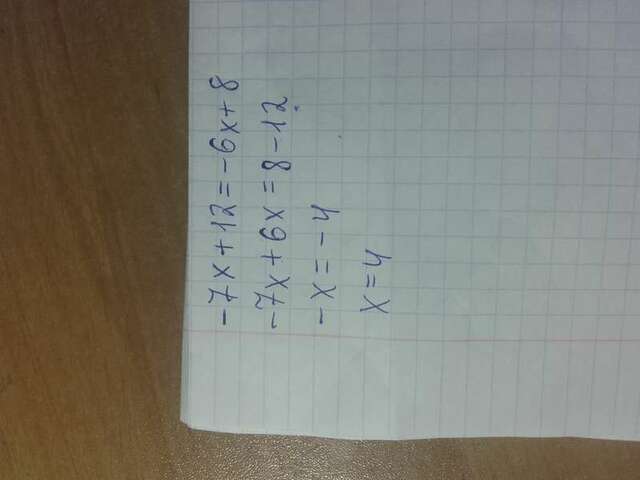 -7x+12=-6x+8
-7x+6x=8-12
-x=-4
x=4